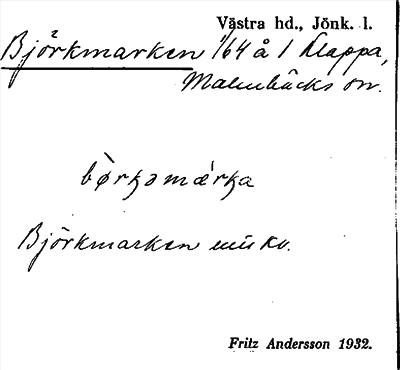 Västra hd., Jönk. l.
Björkmarken 1/64 å 1 Klappa,
Malmbäcks sn.
bø̀rkəmárka
Björkmarken
Fritz Andersson 1932.